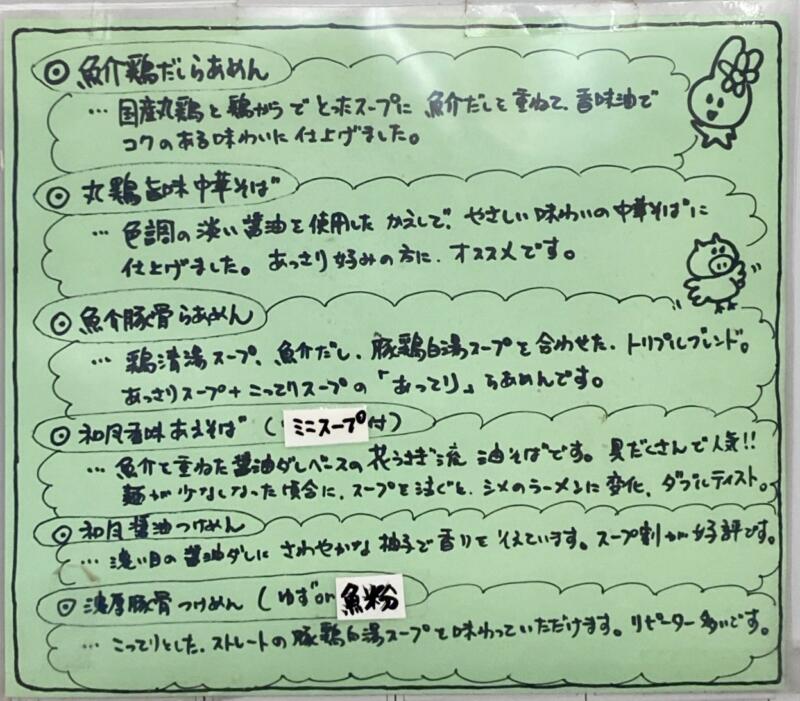 ◉ 魚介鶏だしらあめん
… 国産丸鶏と鶏がらでとったスープに魚介だしを重ねて、香味油で
コクのある味わいに仕上げました。
◉ 丸鶏旨味中華そば
… 色調の淡い醤油を使用したかえしで、やさしい味わいの中華そばに
仕上げました。あっさり好みの方に、オススメです。
◉ 魚介豚骨らあめん
… 鶏清湯スープ、魚介だし、豚鶏白湯スープを合わせた、トリプルブレンド。
あっさりスープ+こってりスープの「あってり」らあめんです。
◉ 和風香味あえそば (ミニスープ付)
… 魚介を重ねた醤油ダレベースの花うさぎ流 油そばです。具だくさんで人気!!
麺が少なくなった頃合に、スープを注ぐと、シメのラーメンに変化、ダブルテイスト。
◉ 和風醤油つけめん
… 濃い目の醤油ダレにさわやかな柚子で香りをそえています。スープ割が好評です。
◉ 濃厚豚骨つけめん (ゆず or 魚粉
… こってりとした、ストレートの豚鶏白湯スープを味わっていただけます。リピーター多いです。